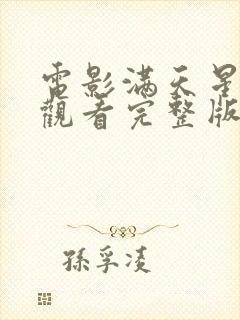 電影滿天星
觀看完整版
孫孚凌